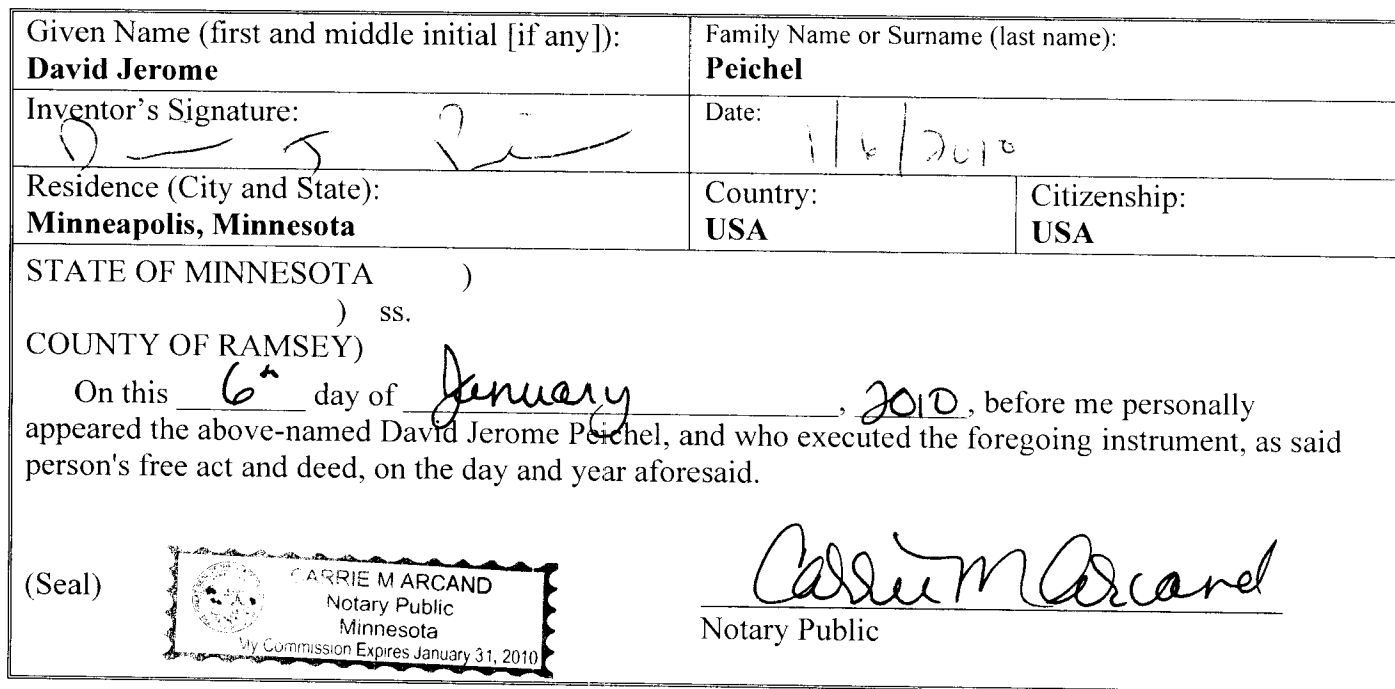 Given Name (first and middle initial [if any]):
David Jerome
Family Name or Surname (last name):
Peichel
Inventor's Signature:
Date:
1/6/2010
Residence (City and State):
Minneapolis, Minnesota
Country:
USA
Citizenship:
USA
STATE OF MINNESOTA )
) ss.
COUNTY OF RAMSEY)
On this 6th day of January, 2010, before me personally
appeared the above-named David Jerome Peichel, and who executed the foregoing instrument, as said
person's free act and deed, on the day and year aforesaid.
(Seal)
CARRIE M ARCAND
Notary Public
Minnesota
My Commission Expires January 31, 2010
Carrie M Arcand
Notary Public